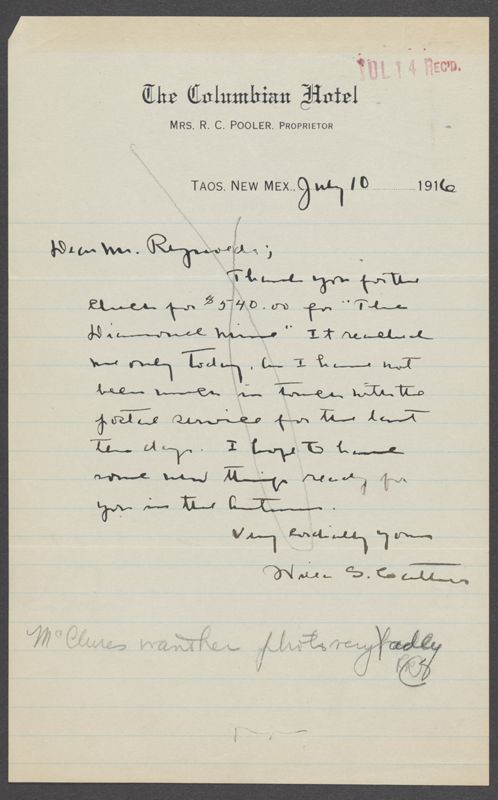 JUL 14 REC'D.
The Columbian Hotel
MRS. R. C. POOLER, PROPRIETOR
TAOS, NEW MEX., July 10 1916
Dear Mr. Reynolds;
Thank you for the
check for $540.00 for "The
Diamond Mine" It reached
me only today, as I have not
been much in touch with the
postal service for the last
ten days. I hope to have
some new things ready for
you in the Autumn.
Very cordially yours
Willa S. Cather
McClures want her photo very badly